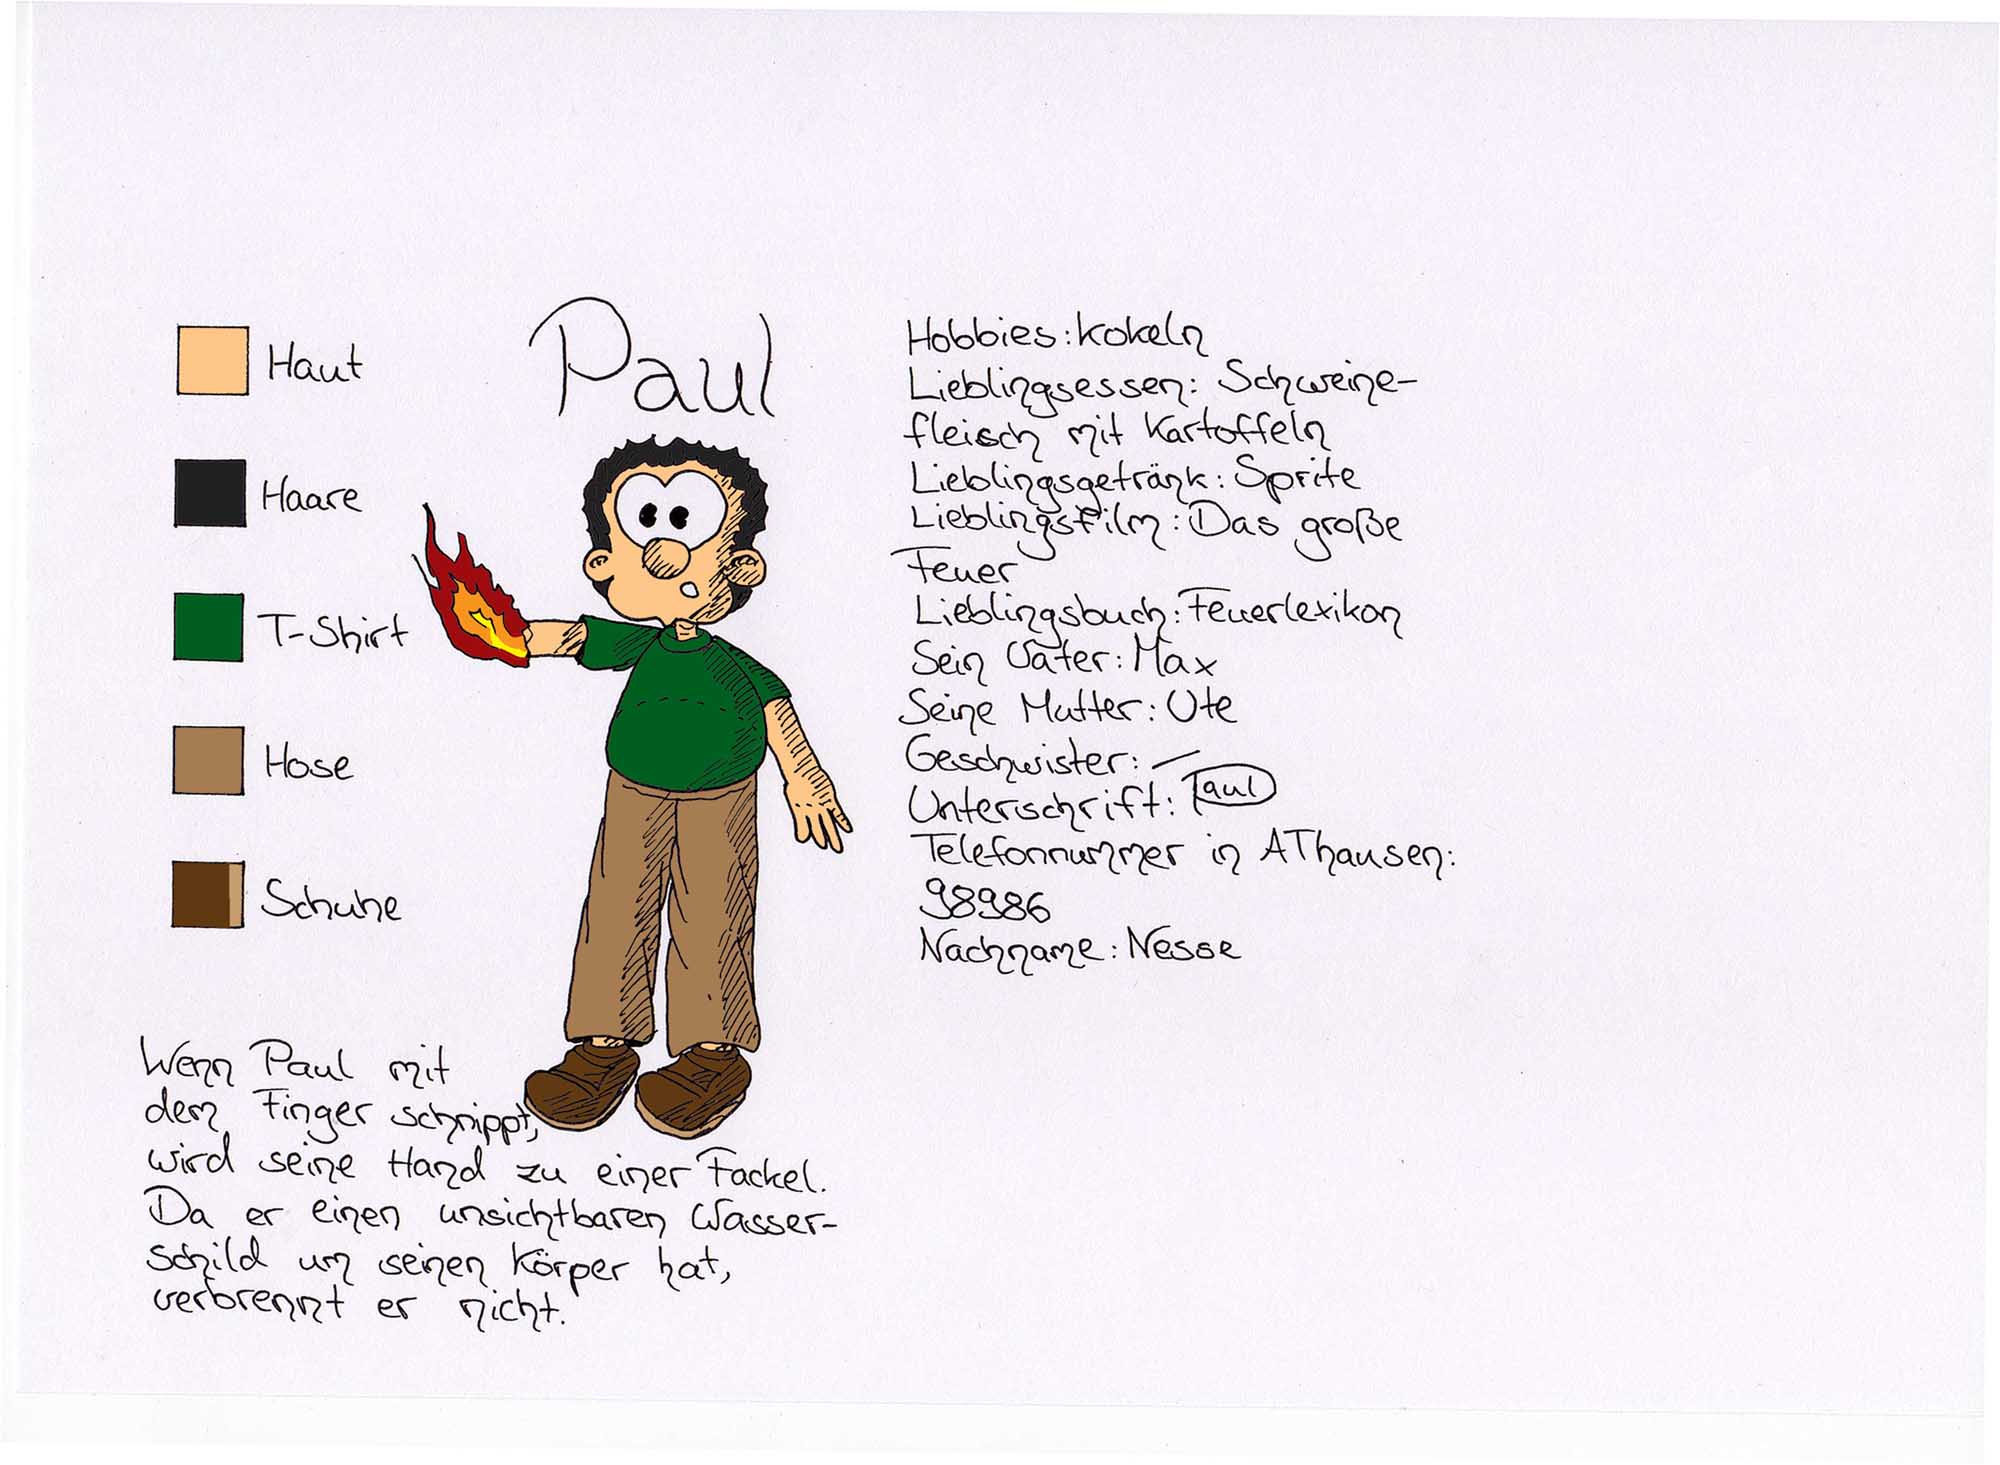 Paul
Haut
Haare
T-Shirt
Hose
Schuhe
Hobbies: kokeln
Lieblingsessen: Schweine-
fleisch mit Kartoffeln
Lieblingsgetränk: Sprite
Lieblingsfilm: Das große
Feuer
Lieblingsbuch: Feuerlexikon
Sein Vater: Max
Seine Mutter: Ute
Geschwister: —
Unterschrift: Paul
Telefonnummer in AThausen:
98986
Nachname: Nesse
Wenn Paul mit
dem Finger schnippt,
wird seine Hand zu einer Fackel.
Da er einen unsichtbaren Wasser-
schild um seinen Körper hat,
verbrennt er nicht.